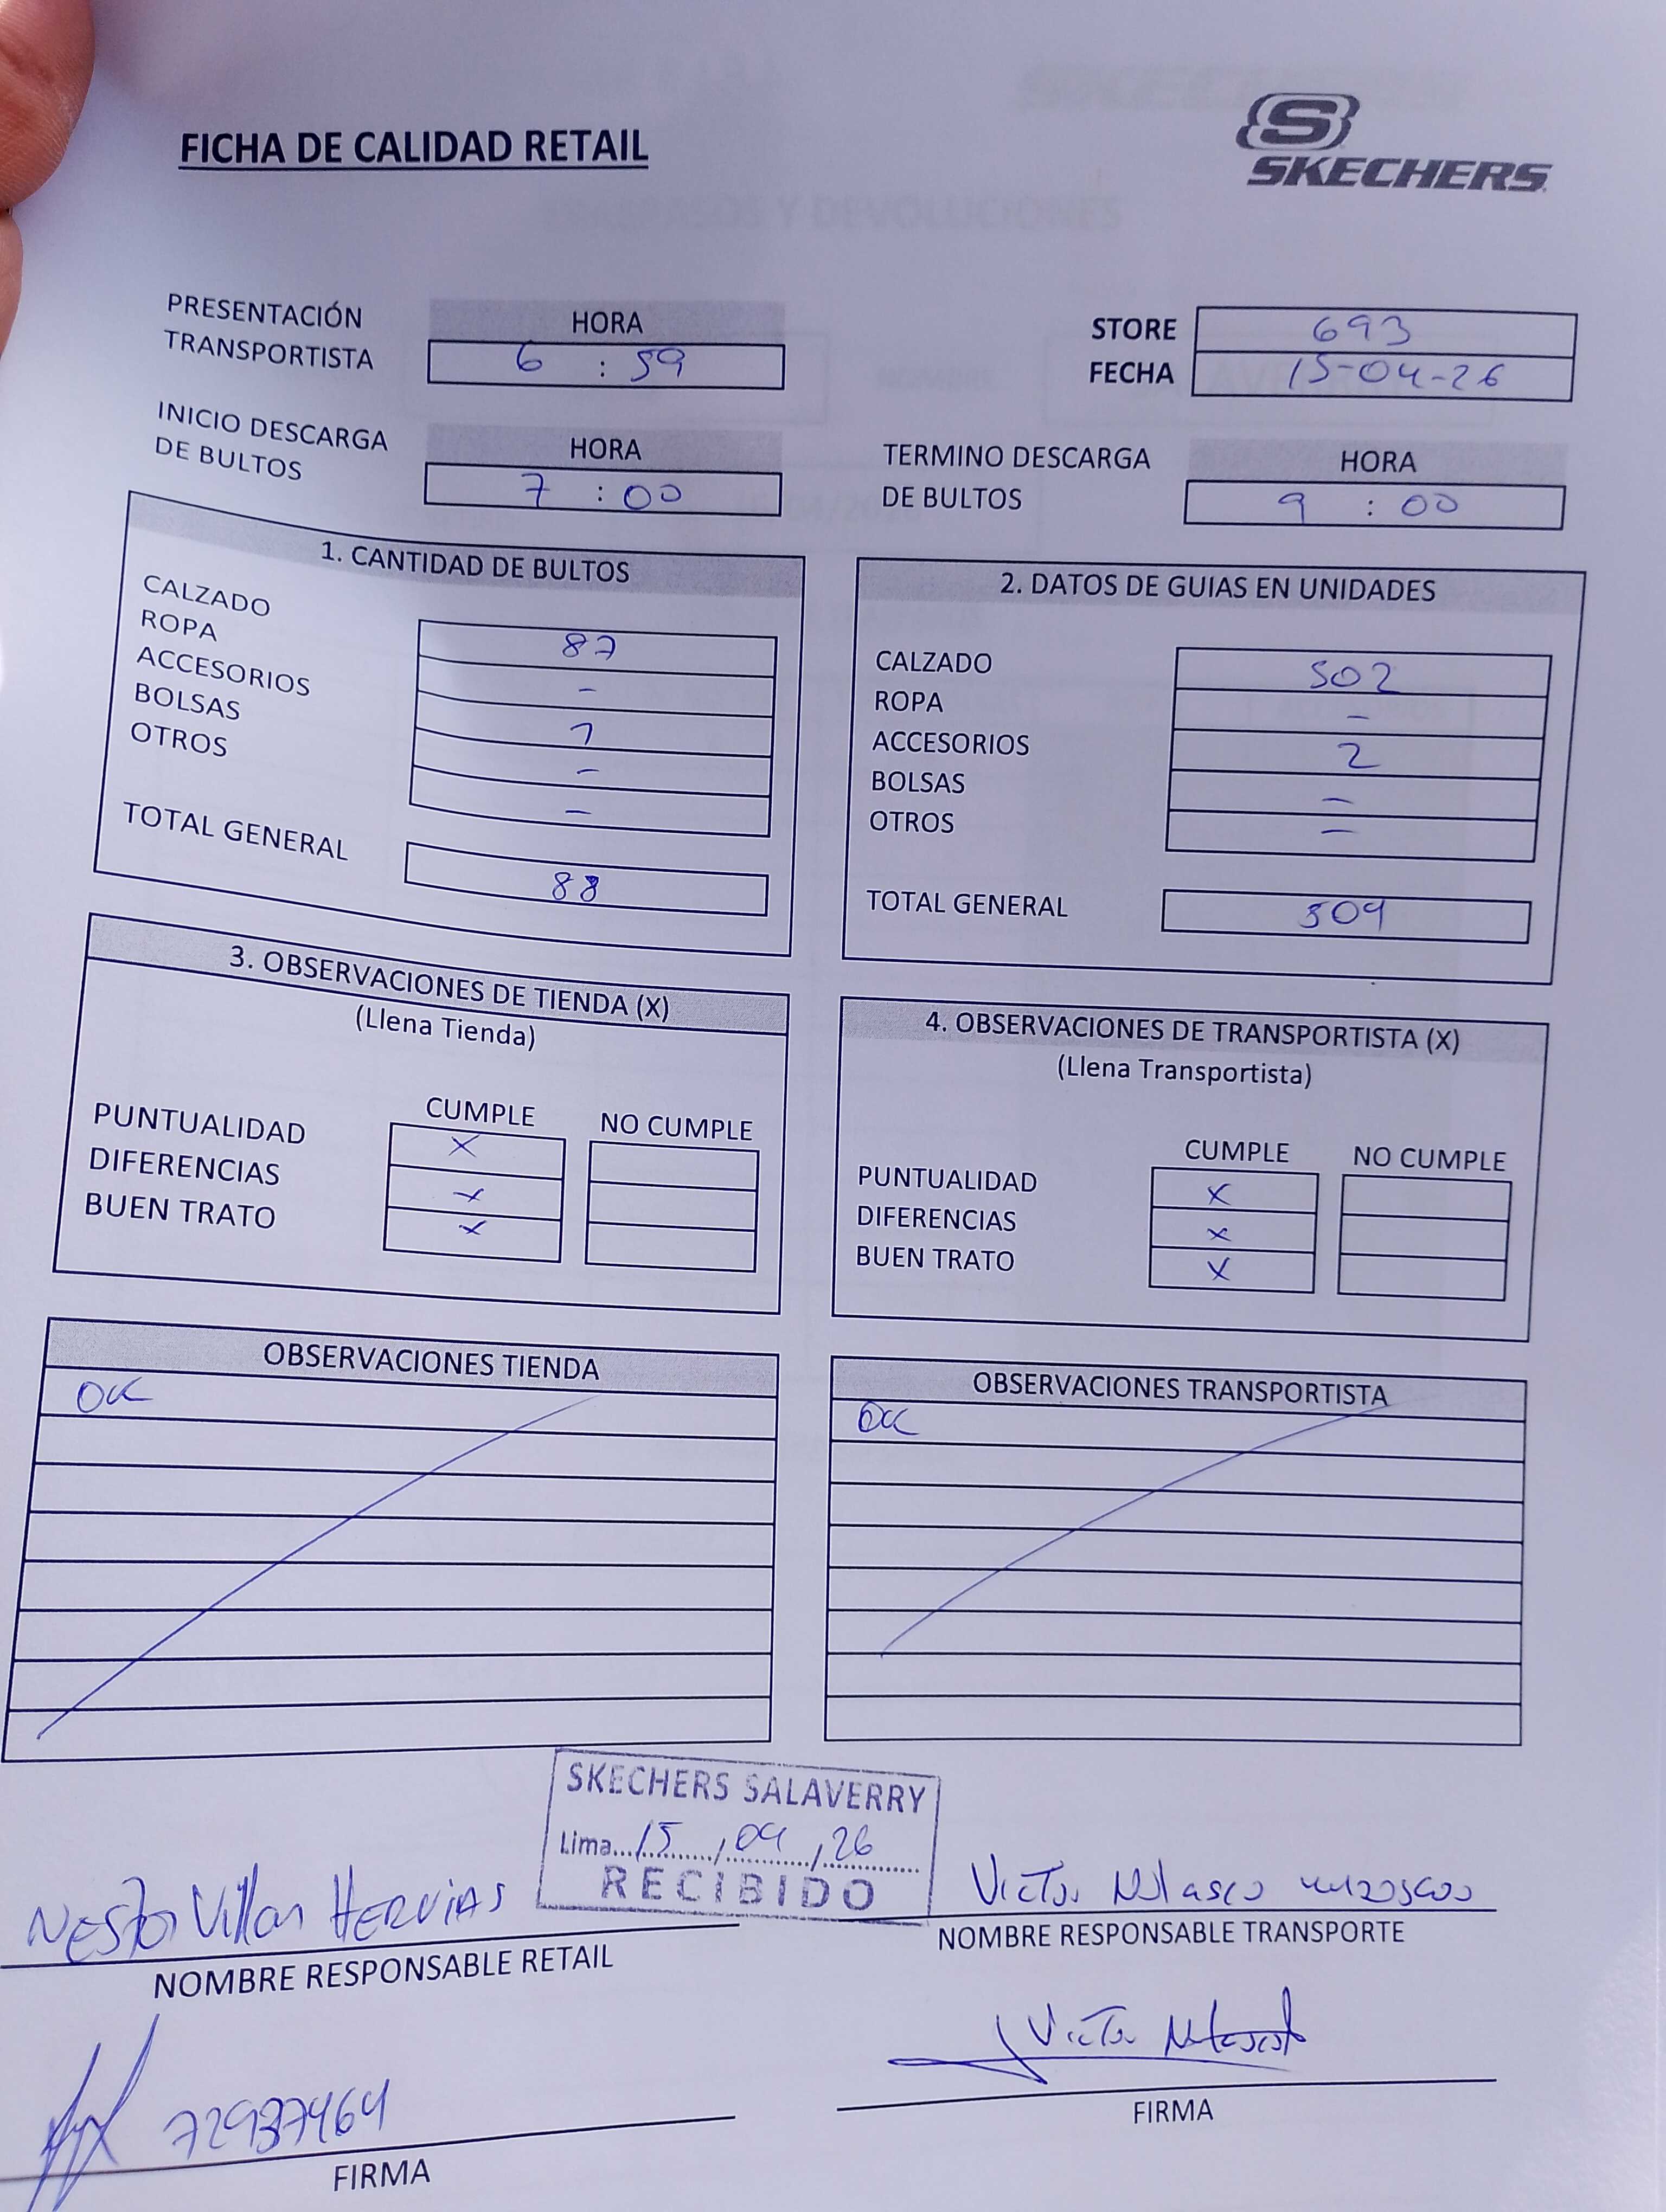 FICHA DE CALIDAD RETAIL
SKECHERS
PRESENTACIÓN TRANSPORTISTA
HORA
6 : 59
STORE 693
FECHA 15-04-26
INICIO DESCARGA DE BULTOS
HORA
7 : 00
TERMINO DESCARGA DE BULTOS
HORA
9 : 00
1. CANTIDAD DE BULTOS
CALZADO 87
ROPA -
ACCESORIOS 1
BOLSAS -
OTROS -
TOTAL GENERAL 88
2. DATOS DE GUIAS EN UNIDADES
CALZADO 502
ROPA -
ACCESORIOS 2
BOLSAS -
OTROS -
TOTAL GENERAL 504
3. OBSERVACIONES DE TIENDA (X)
(Llena Tienda)
CUMPLE NO CUMPLE
PUNTUALIDAD X
DIFERENCIAS X
BUEN TRATO X
4. OBSERVACIONES DE TRANSPORTISTA (X)
(Llena Transportista)
CUMPLE NO CUMPLE
PUNTUALIDAD X
DIFERENCIAS X
BUEN TRATO X
OBSERVACIONES TIENDA
OK
OBSERVACIONES TRANSPORTISTA
OK
SKECHERS SALAVERRY
Lima...15/04/26
RECIBIDO
Nestor Villar HERVIAS
NOMBRE RESPONSABLE RETAIL
Victor Nolasco
NOMBRE RESPONSABLE TRANSPORTE
72937464
FIRMA
Victor Nolasco
FIRMA